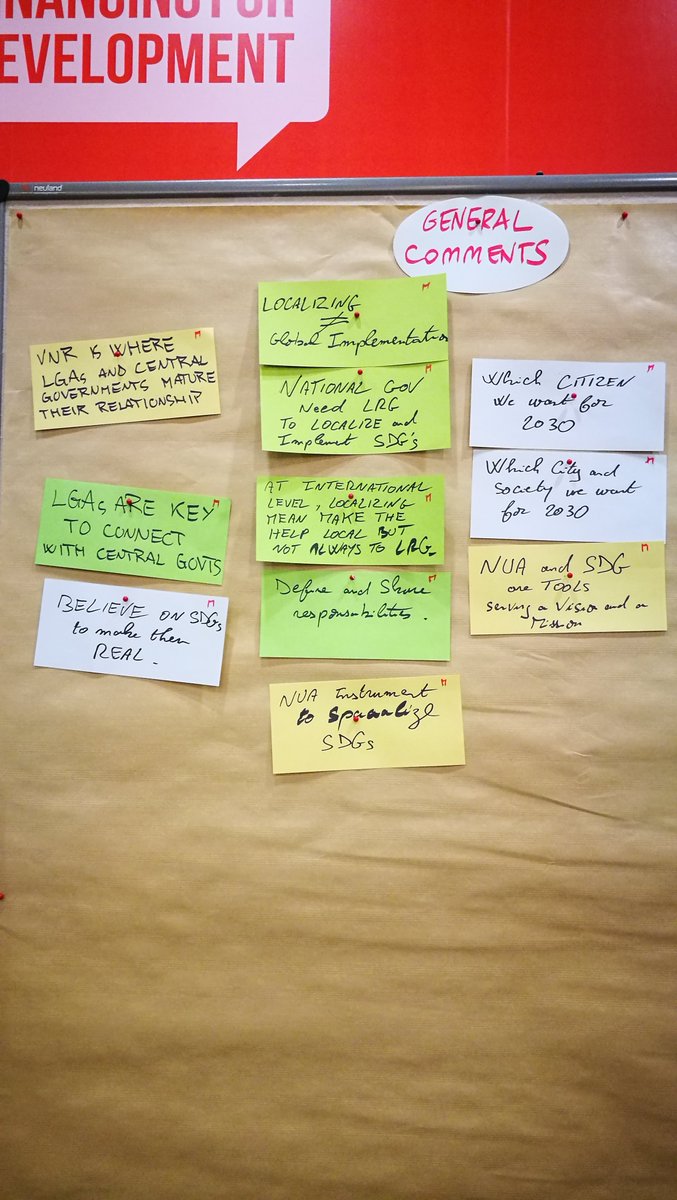 NANCING FOR
EVELOPMENT
neuland
GENERAL
COMMENTS
VNR IS WHERE
LGAs AND CENTRAL
GOVERNMENTS MATURE
THEIR RELATIONSHIP
LGAs ARE KEY
TO CONNECT
WITH CENTRAL GOVTS
BELIEVE ON SDGs
to make them
REAL.
LOCALIZING
≠
Global Implementation
NATIONAL GOV
Need LRG
TO LOCALIZE and
Implement SDG's
AT INTERNATIONAL
LEVEL, LOCALIZING
MEAN MAKE THE
HELP LOCAL BUT
NOT ALWAYS TO LRG.
Define and Share
responsabilities.
NUA Instrument
to Spacialize
SDGs
Which CITIZEN
we want for
2030
Which City and
Society we want
for 2030
NUA and SDG
are TOOLS
serving a Vision and a
Mission